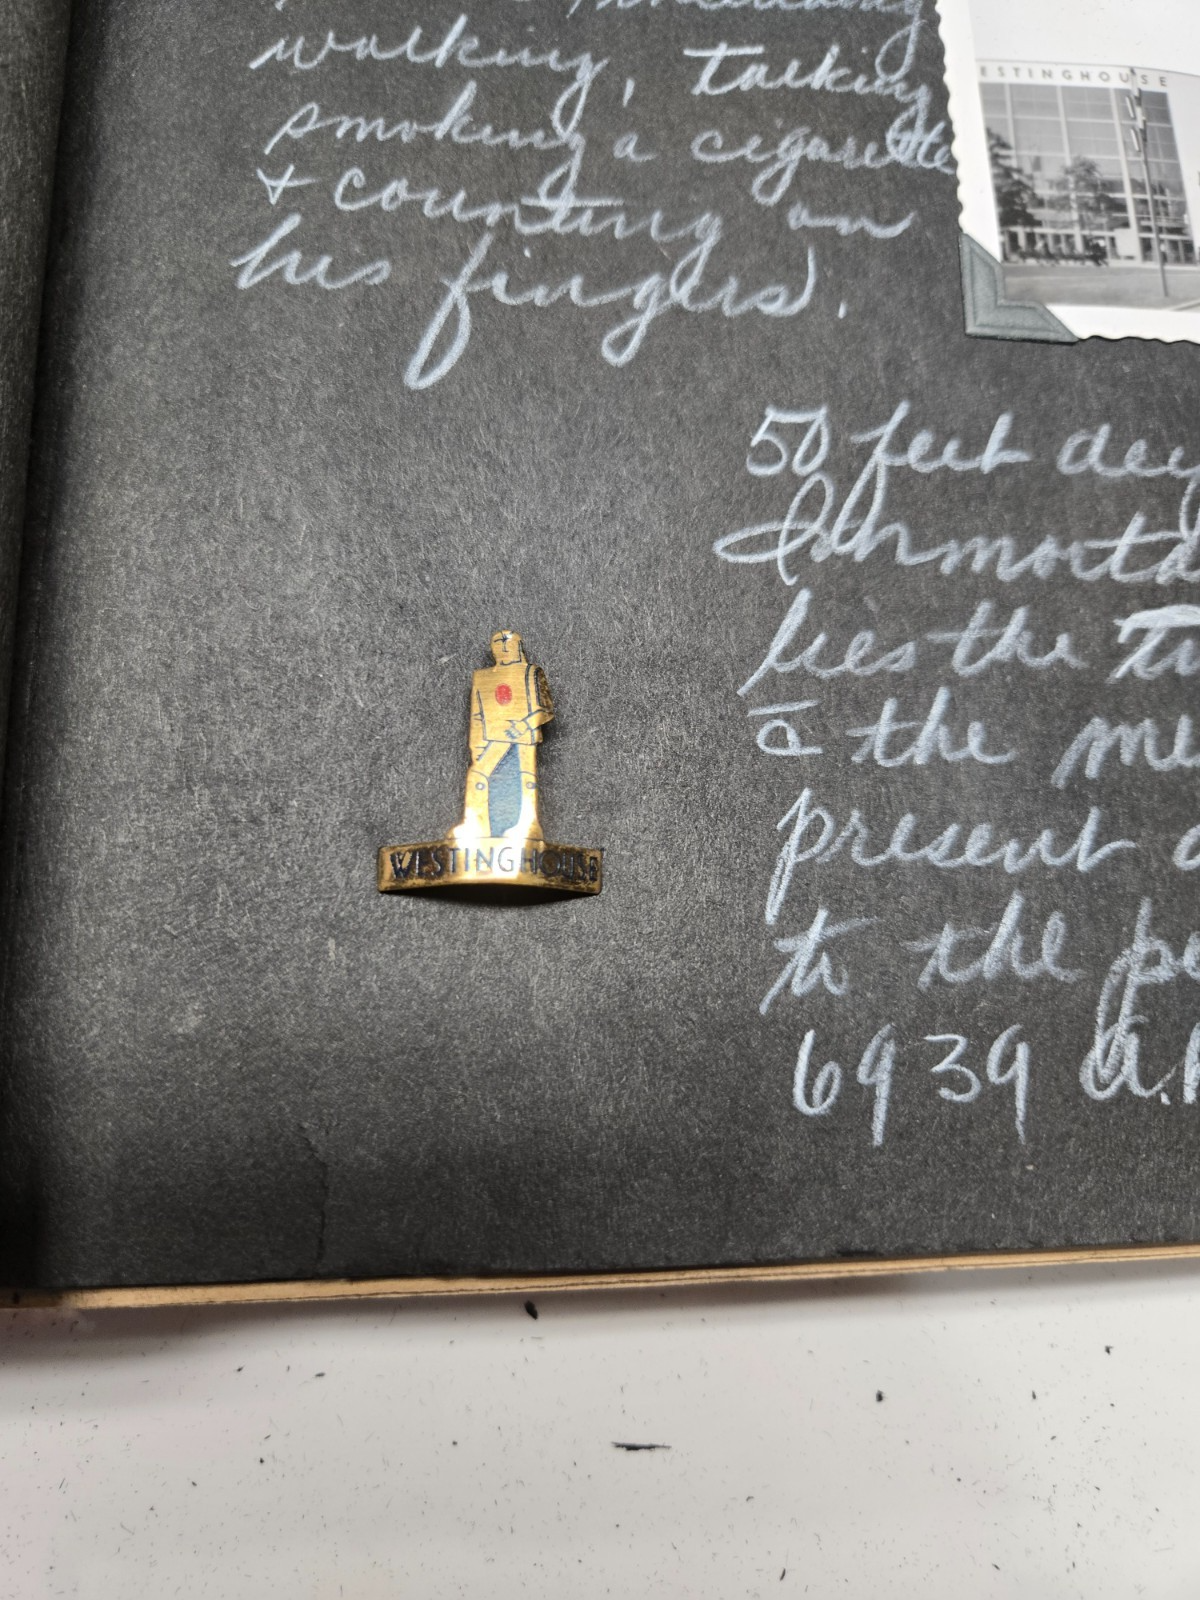 walking, talking
smoking a cigarette
& counting on
his fingers.
ESTINGHOUSE
50 feet dee
Immorta
lies the
& the me
present
to the pe
6939 A.
WESTINGHOUSE